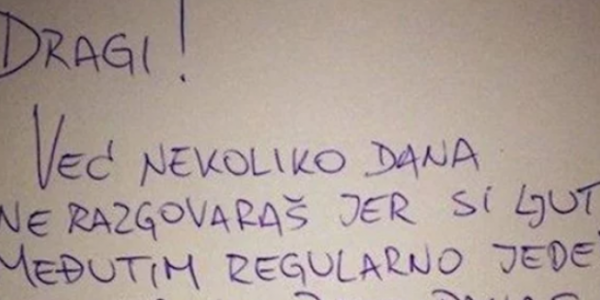 DRAGI!
VEĆ NEKOLIKO DANA
NE RAZGOVARAŠ JER SI LJUT
MEĐUTIM REGULARNO JEDE